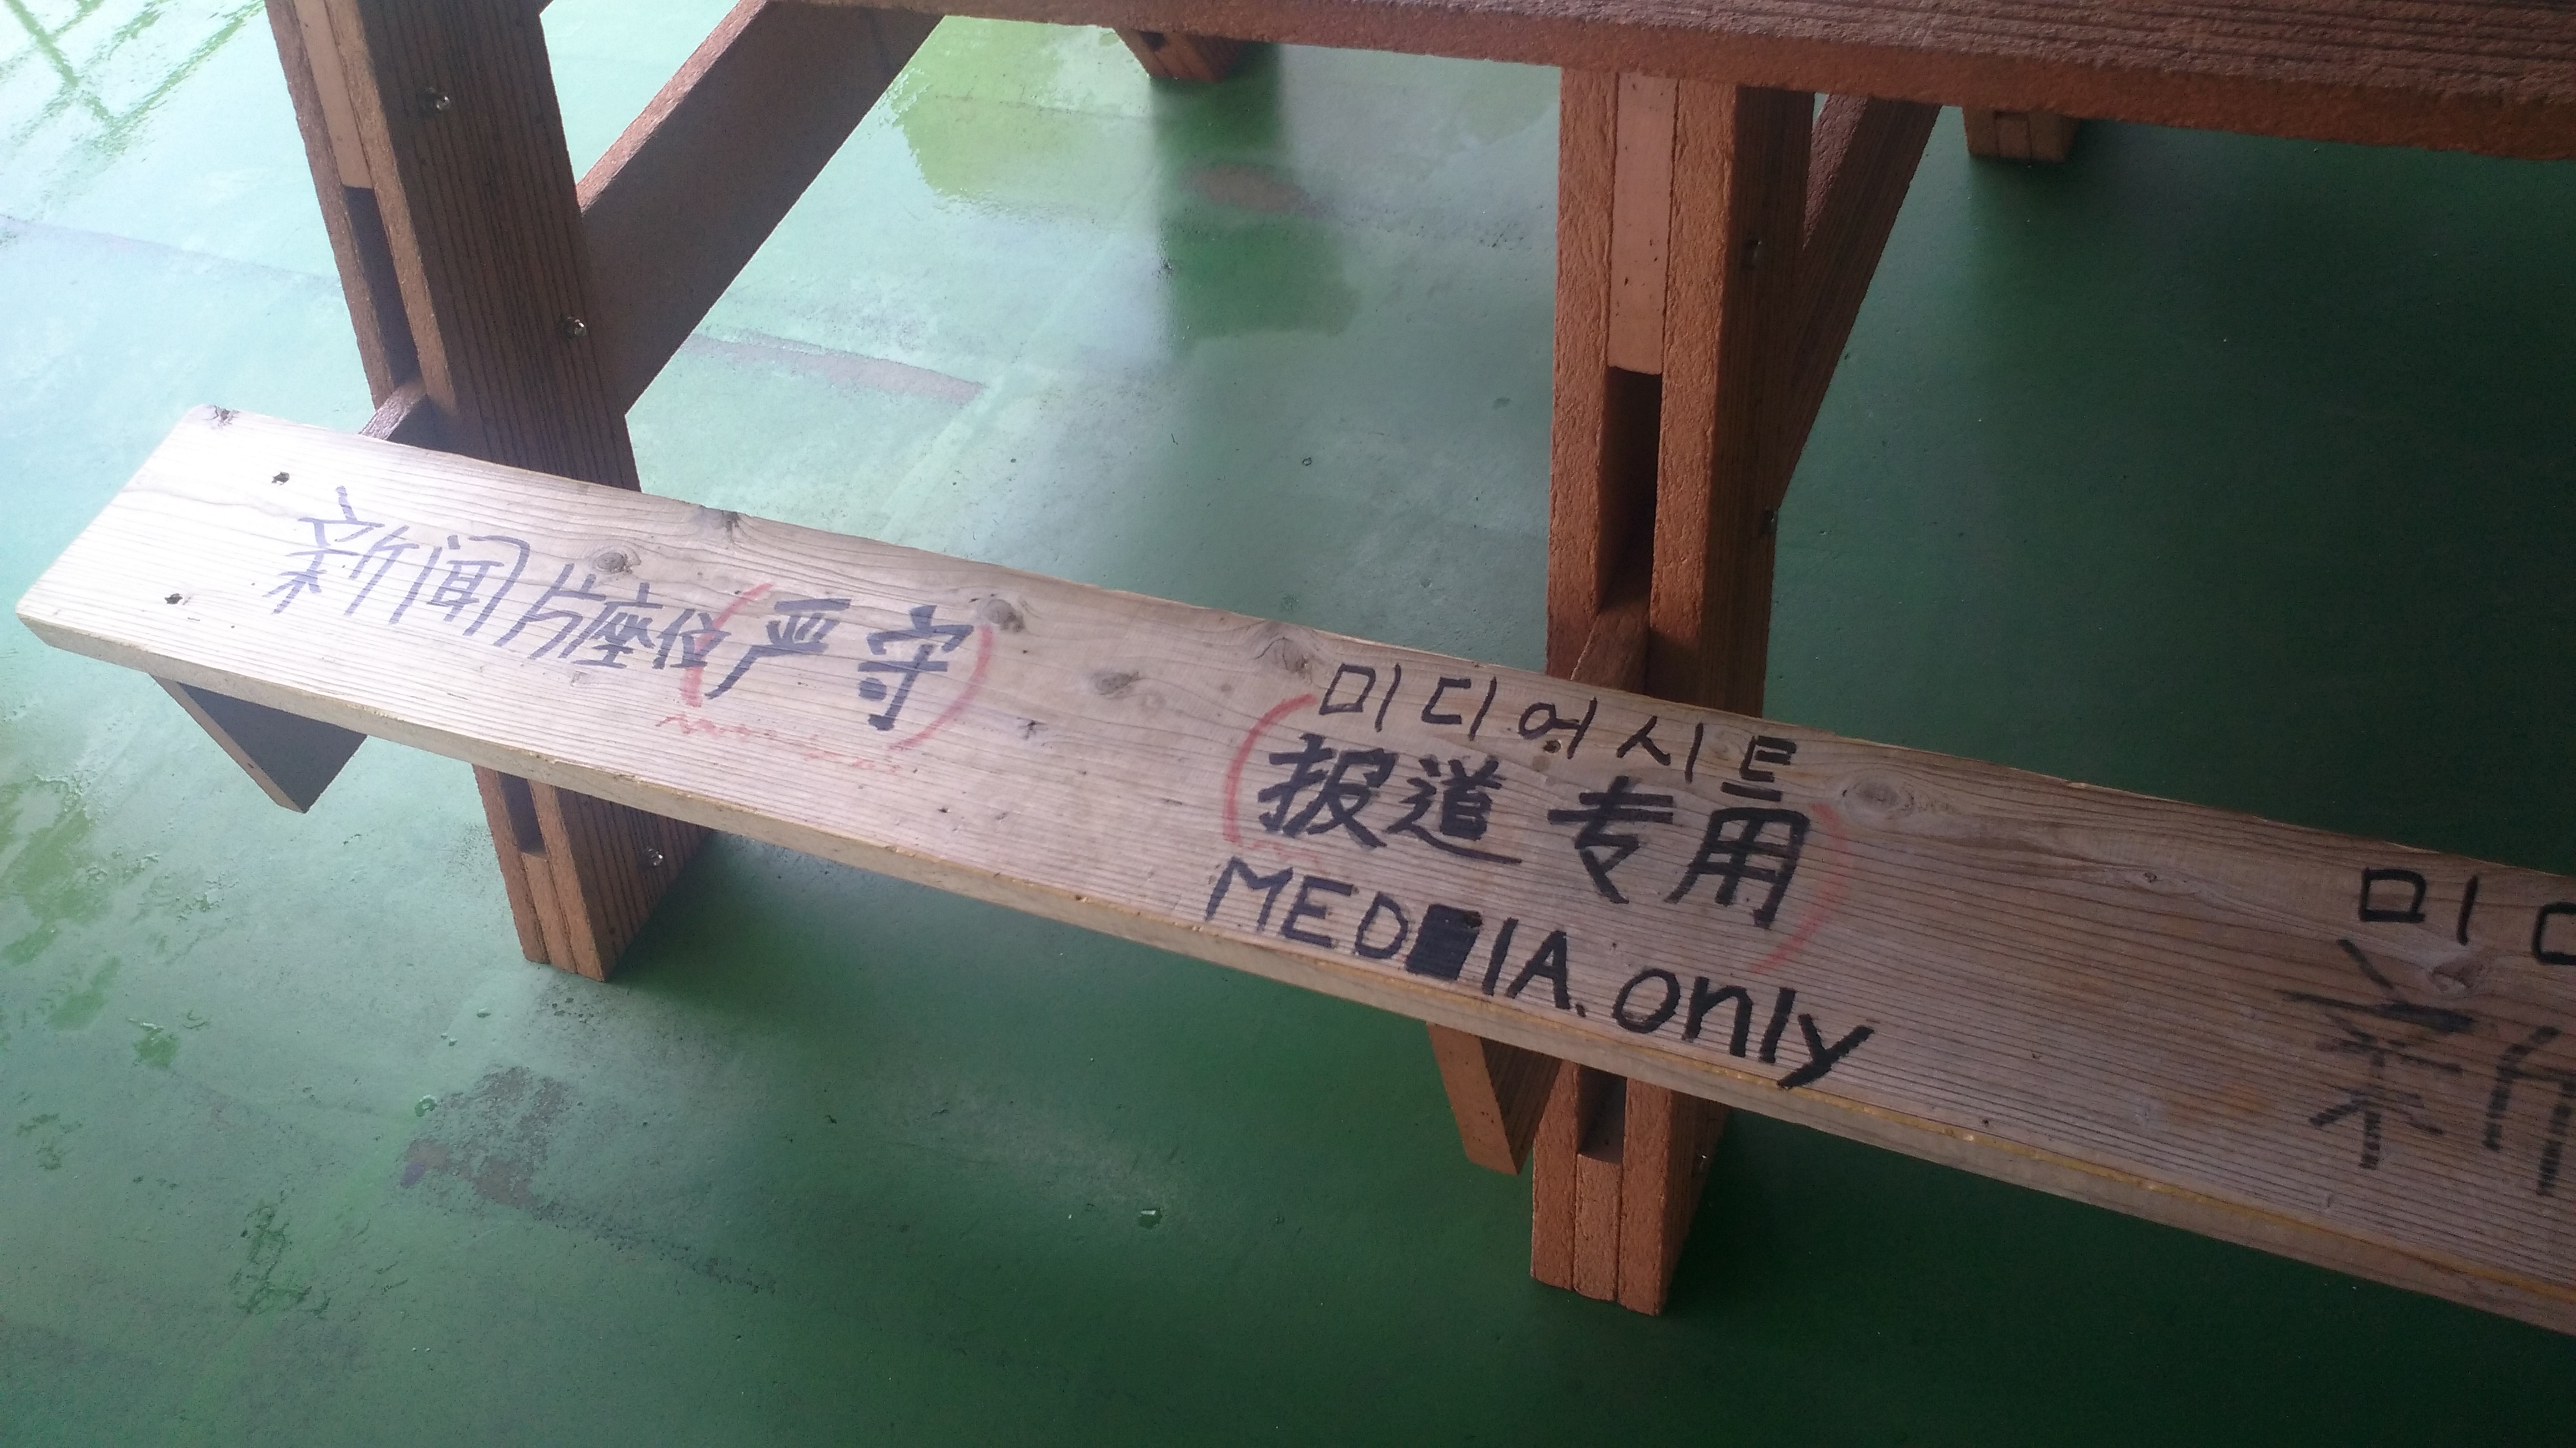 新闻片座位(严守)
미디어시트
(报道专用)
MEDIA.only
미디
新